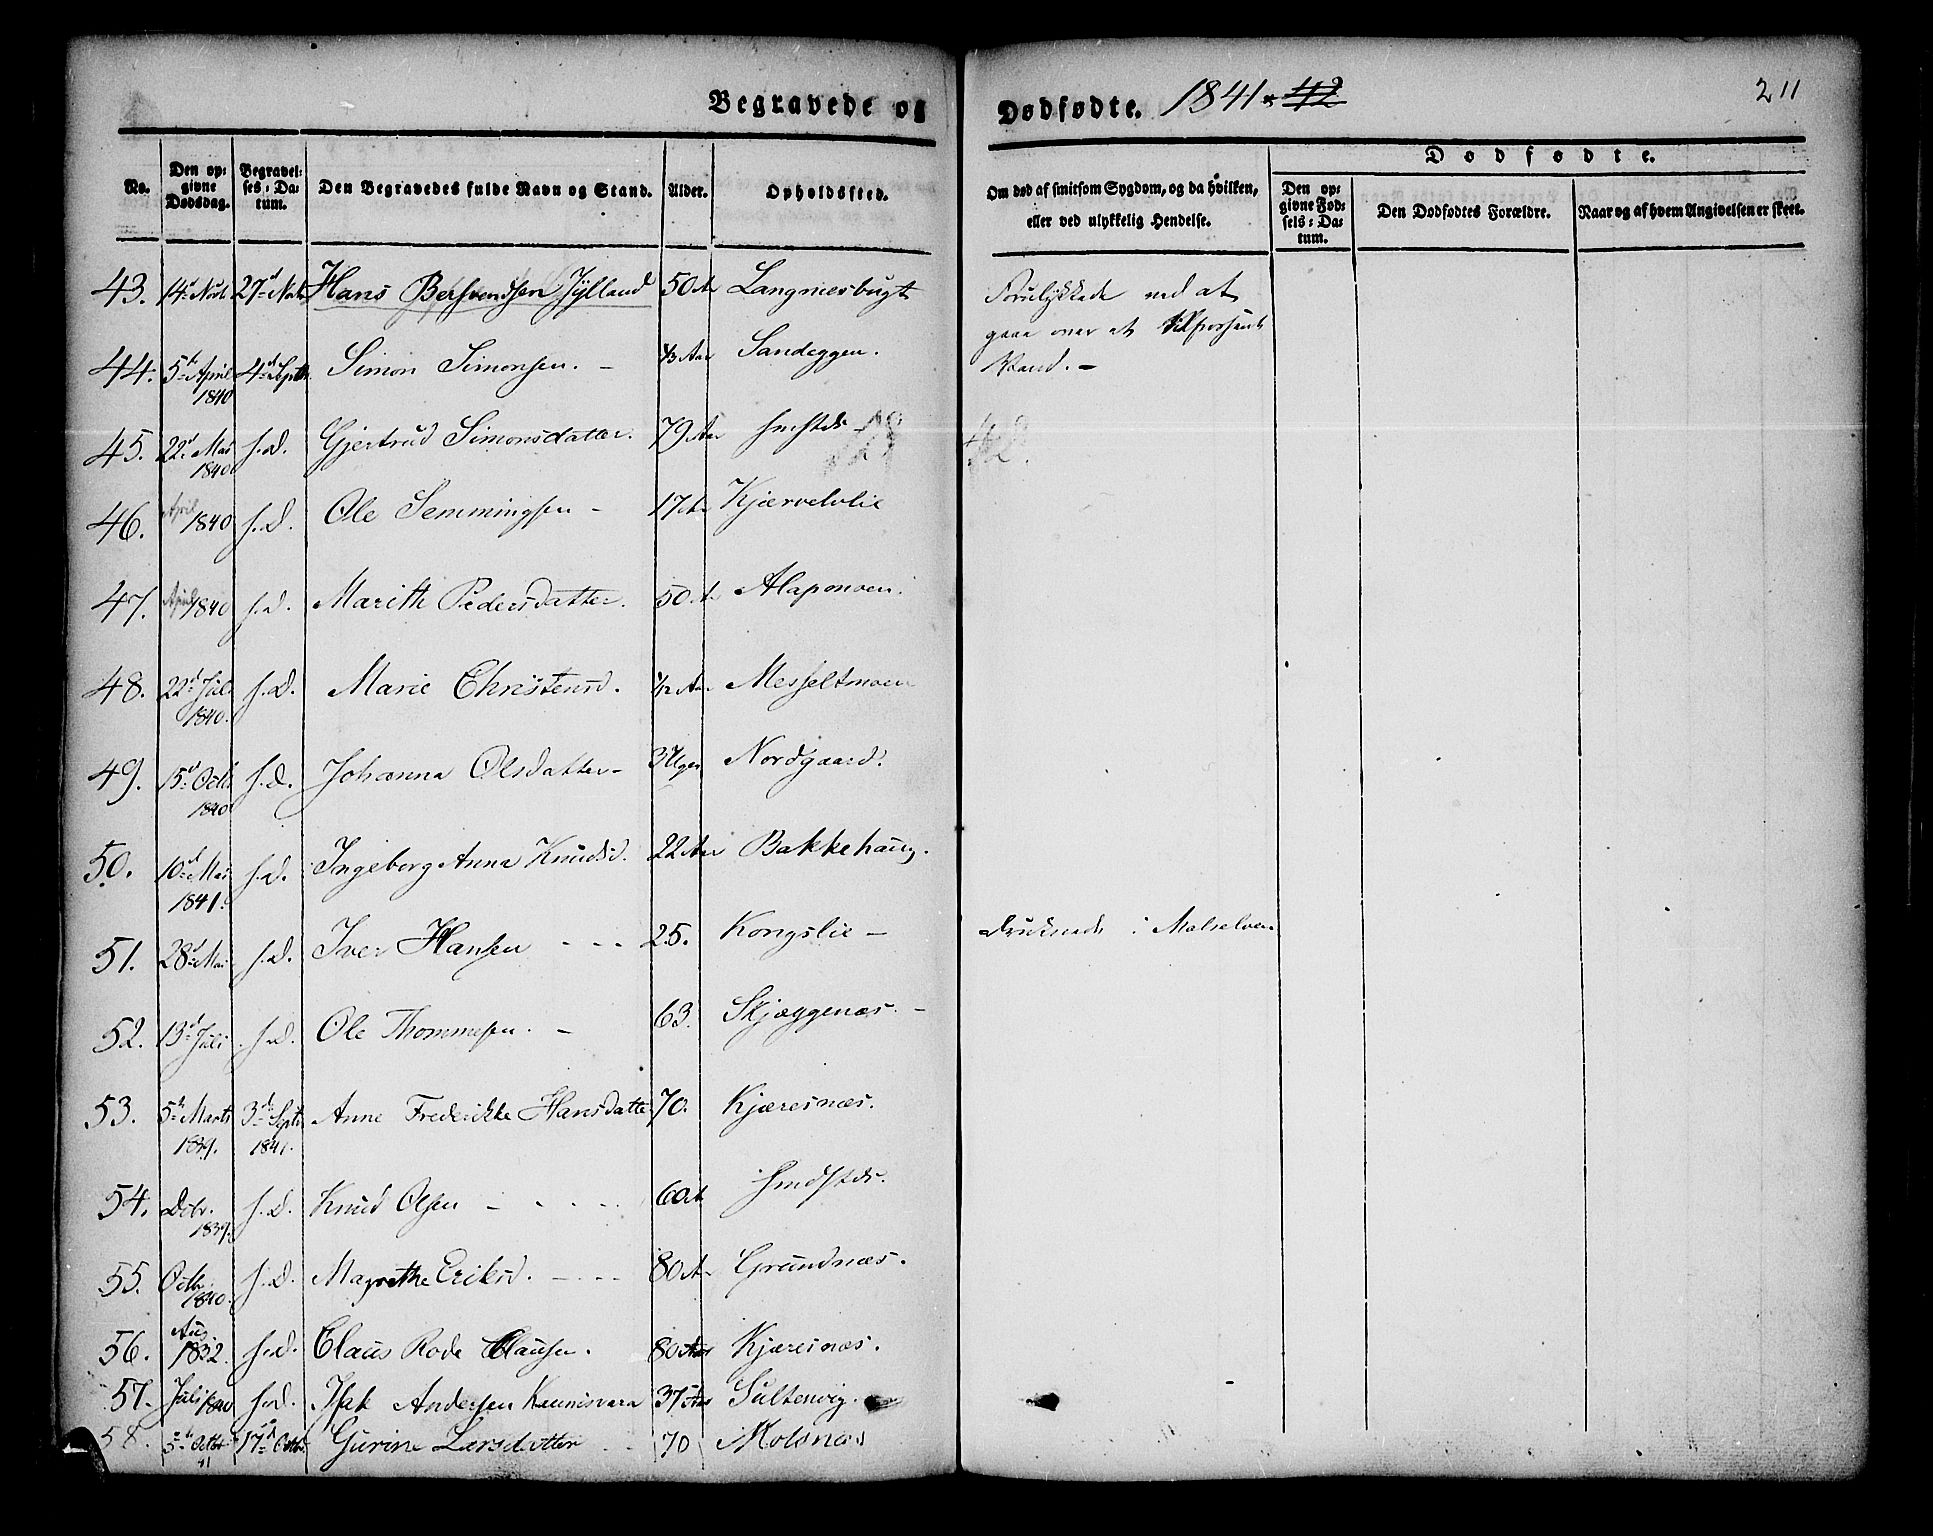 Begravede og Dødfødte. 1841 * 42
211
No. Den opgivne Dødsdag. Begravelses-Datum. Den Begravedes fulde Navn og Stand. Alder. Opholdssted. Om død af smitsom Sygdom, og da hvilken, eller ved ulykkelig Hendelse.
Dødfødte.
Den opgivne Fødsels-Datum. Den Dødfødtes Forældre. Naar og af hvem Angivelsen er skeet.
43. 14d Novb 27d Nov Hans Bersvendsen Jylland 50 A Langnæsbugt Forulykkede ved at
gaae over et tilfrossent
Vand. -
44. 5te April 1840 4d Septbr. Simon Simonsen. - 1/3 Aar Sandeggen.
45. 22d Mai 1840 s. D. Gjertrud Simonsdatter. 79 Aar
46. April 1840 s. D. Ole Semmingsen - 17 A. Kjærvelvlie
47. April 1840 s. D. Marith Pedersdatter. 50 A. Alapomoen.
48. 22d Jul. 1840. s. D. Marie Christensd. 1/2 Aar Messeltmoen
49. 15d Octb. 1840 s. D. Johanna Olsdatter - 3 Uger Nordgaard.
50. 10d Mai 1841. s. D. Ingeborg Anna Knudsd. 22 Aar Bakkehaug.
51. 28d Mai s. D. Iver Hansen - - - 25. Kongslie - Druknede i Malselven
52. 13d Juli s. D. Ole Thommesen. - 63. Skjæggenæs. -
53. 5te Marts 1839. 3d Septr. 1841. Anne Frederikke Hansdatter 70. Kjæresnæs.
54. Debr. 1839. s. D. Knud Olsen - - - - 60 A
55. Octbr. 1840. s. D. Magrethe Eriksd. - - - 80 A. Grundnæs.
56. Aug. 1832. s. D. Claus Rode Clausen. 80 Aar Kjæresnæs.
57. Juli 1840 s. D. Isak Andersen Kunnisvara 37 Aar Sultenvig.
58. 5te Octbr 41 17d Octbr. Gurine Larsdatter - - 70 Molsnæs